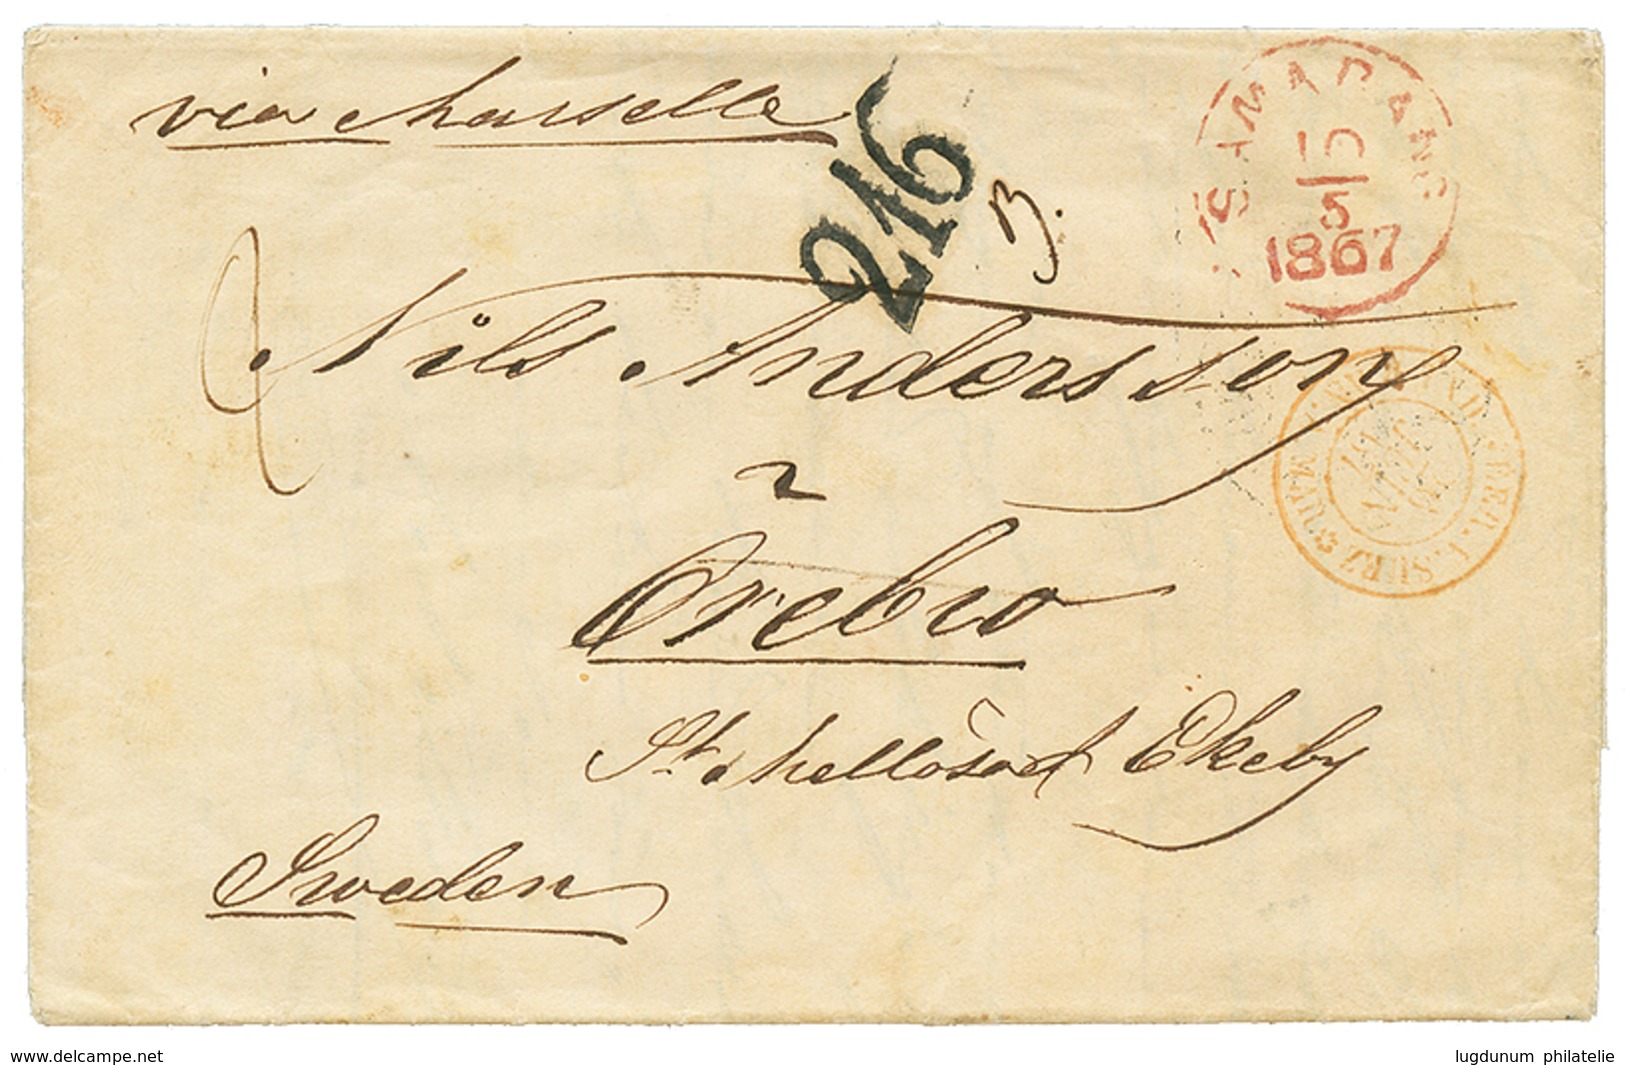 via Marseille
216
SAMARANG
10
5
1867
B.
Nils Andersson
Örebro
St. Mellösa & Ekeby
Sweden
delcampe.net
lugdunum philatelie